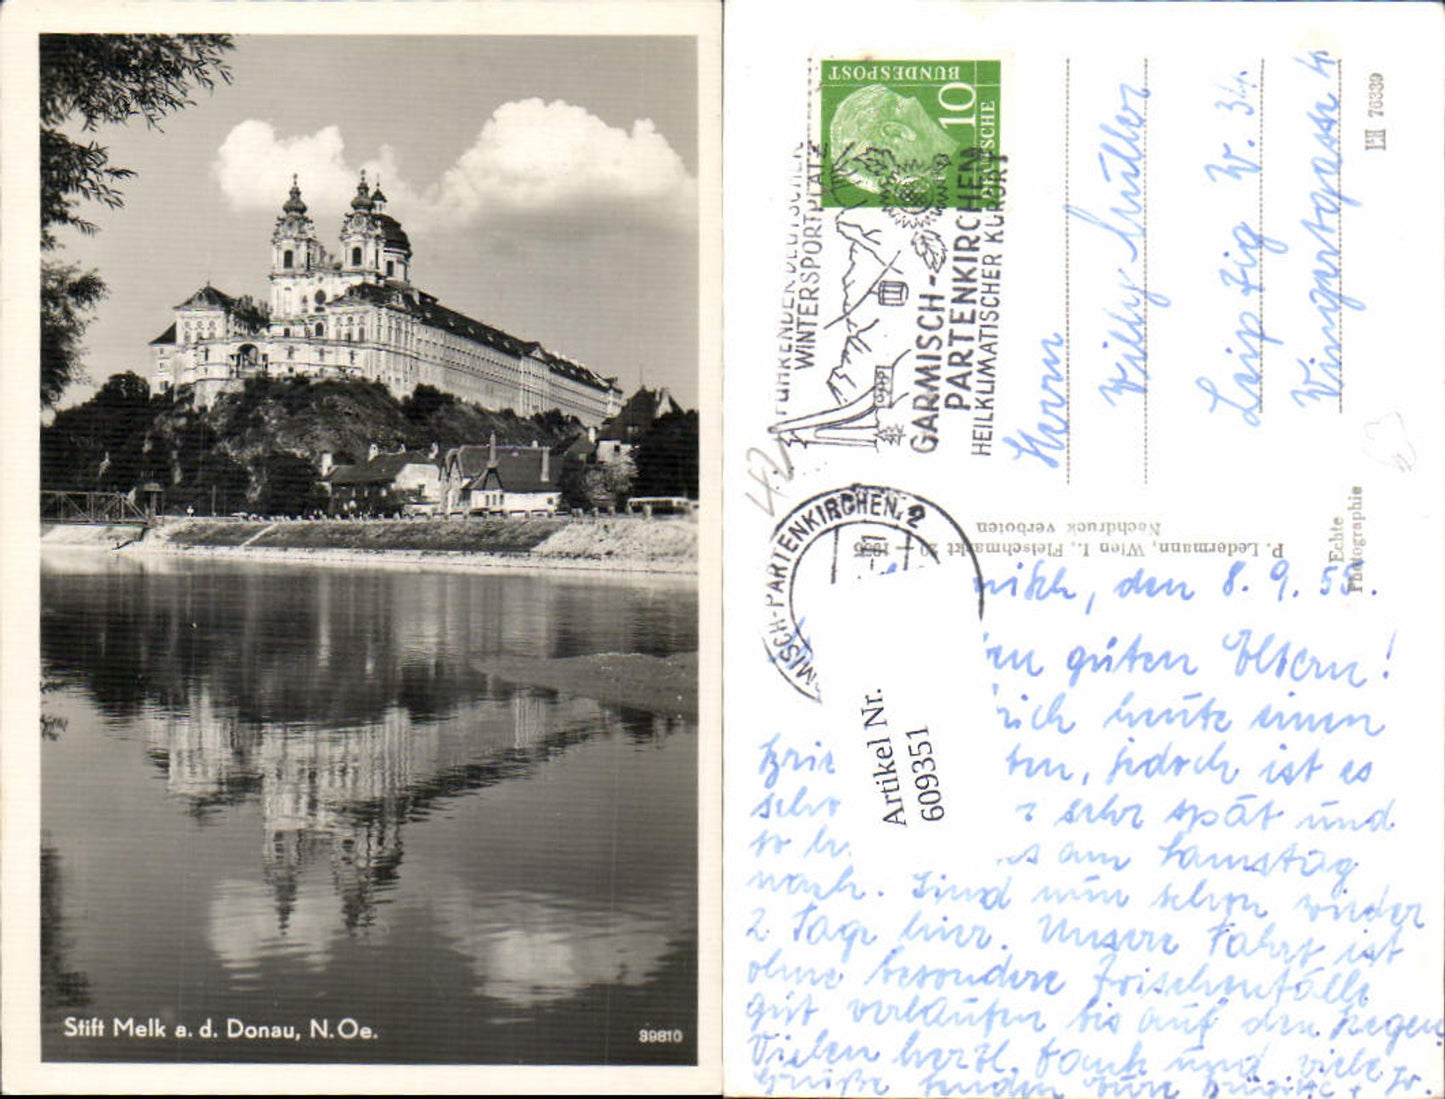 Stift Melk a. d. Donau, N.Oe.
39810
DEUTSCHE
BUNDESPOST
10
FÜHRENDER DEUTSCHER
WINTERSPORTPLATZ
GARMISCH-
PARTENKIRCHEN
HEILKLIMATISCHER KURORT
42
PARTENKIRCHEN 2
Herrn
Willy Müller
Leipzig W. 34.
Weingartgasse 4
LH 76339
P. Ledermann, Wien I., Fleischmarkt 20 — 1955
Nachdruck verboten
Echte
Photographie
Artikel Nr.
609351
den 8. 9. 55.
guten Eltern!
heute einen
jedoch ist es
sehr spät und
am Samstag
nach. Sind nun schon wieder
2 Tage hier. Unsere Fahrt ist
ohne besondere Zwischenfälle
gut verlaufen bis auf den Regen
Vielen herzl. Dank und viele
Grüße senden Eure